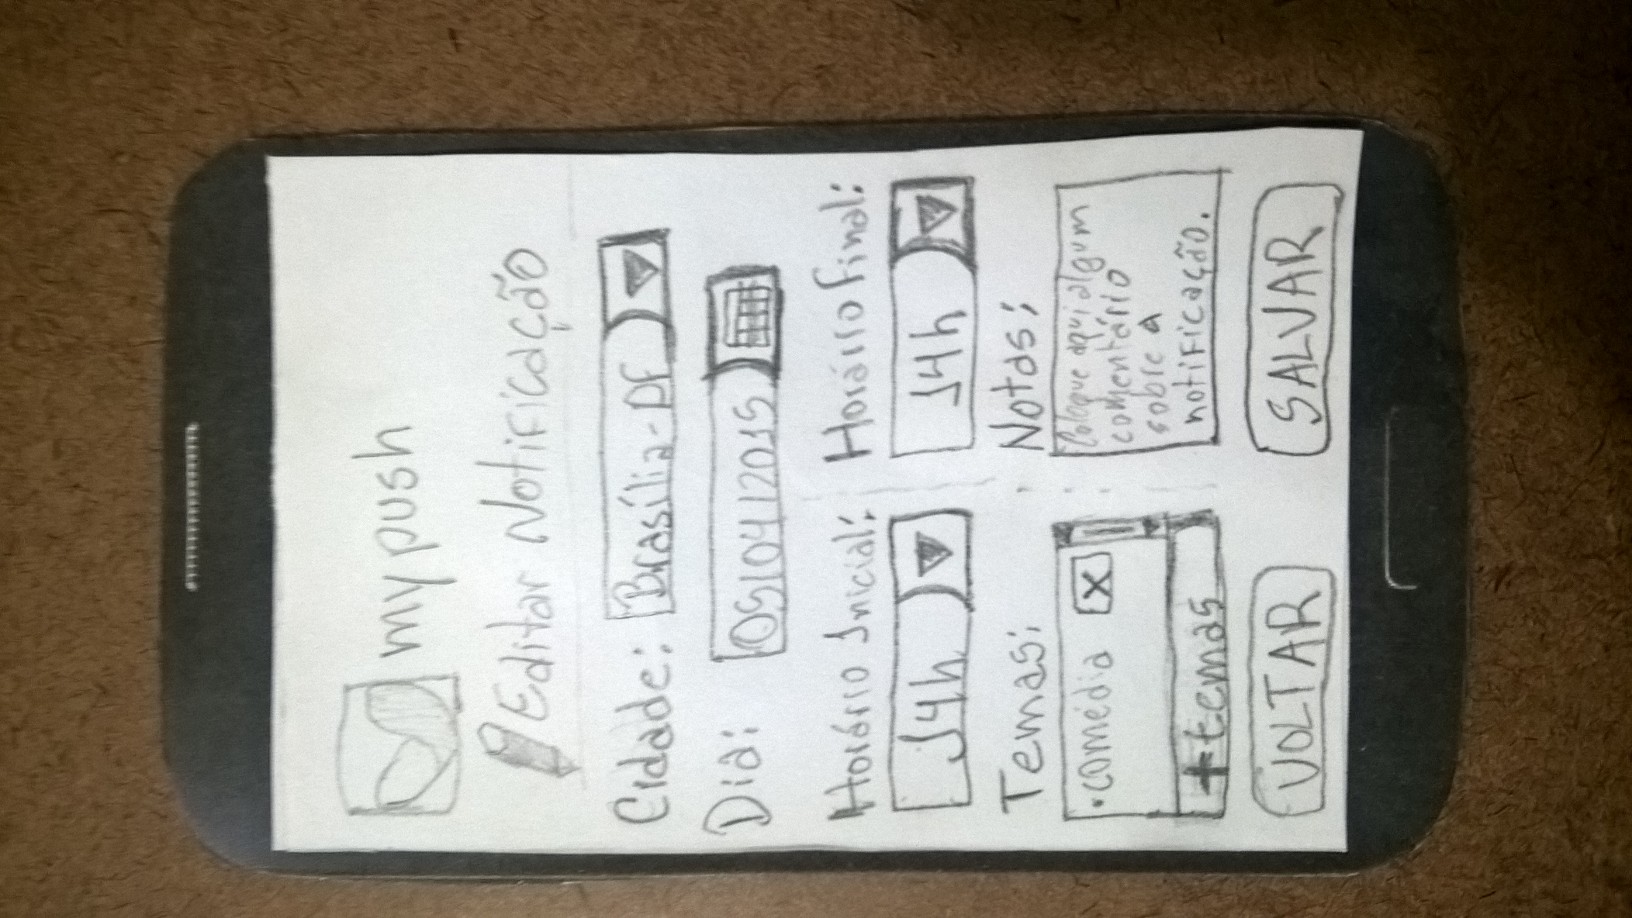 my push
Editar Notificação
Cidade: Brasília-DF
Dia: 05/04/2015
Horário Inicial: Horário Final:
14h 14h
Temas: Notas:
•comédia X
+temas
Coloque aqui algum
comentário
sobre a
notificação.
VOLTAR SALVAR